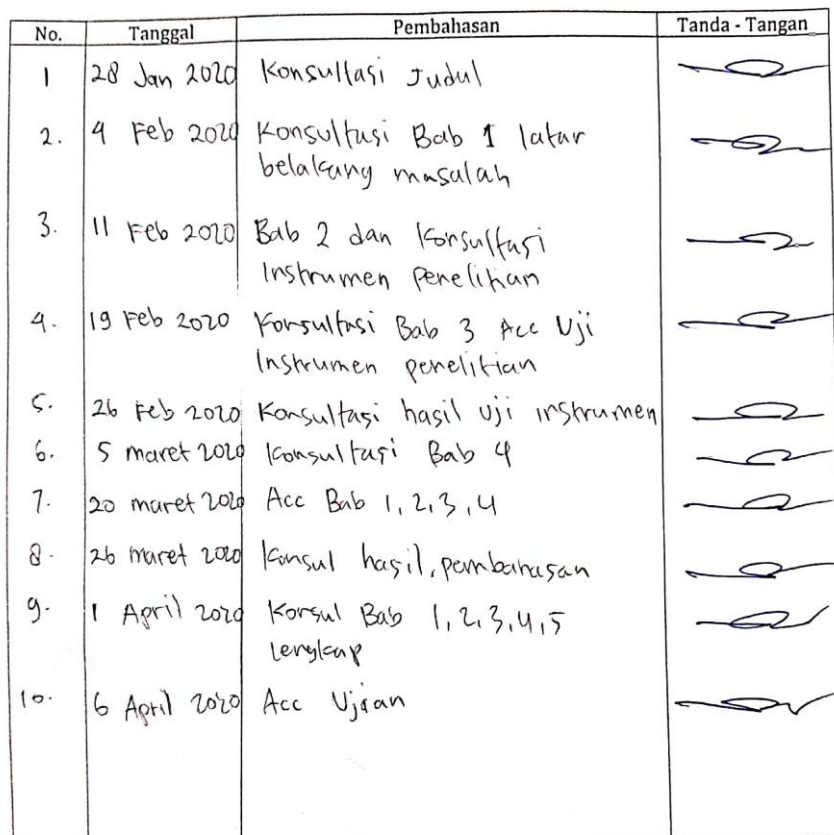 No. Tanggal Pembahasan Tanda - Tangan
1 28 Jan 2020 Konsultasi Judul
2. 4 Feb 2020 Konsultasi Bab 1 latar
belakang masalah
3. 11 Feb 2020 Bab 2 dan Konsultasi
Instrumen penelitian
4. 19 Feb 2020 Konsultasi Bab 3 Acc Uji
Instrumen penelitian
5. 26 Feb 2020 Konsultasi hasil Uji instrumen
6. 5 maret 2020 Konsultasi Bab 4
7. 20 maret 2020 Acc Bab 1, 2, 3, 4
8. 26 maret 2020 Konsul hasil, pembahasan
9. 1 April 2020 Konsul Bab 1, 2, 3, 4, 5
lengkap
10. 6 April 2020 Acc Ujian